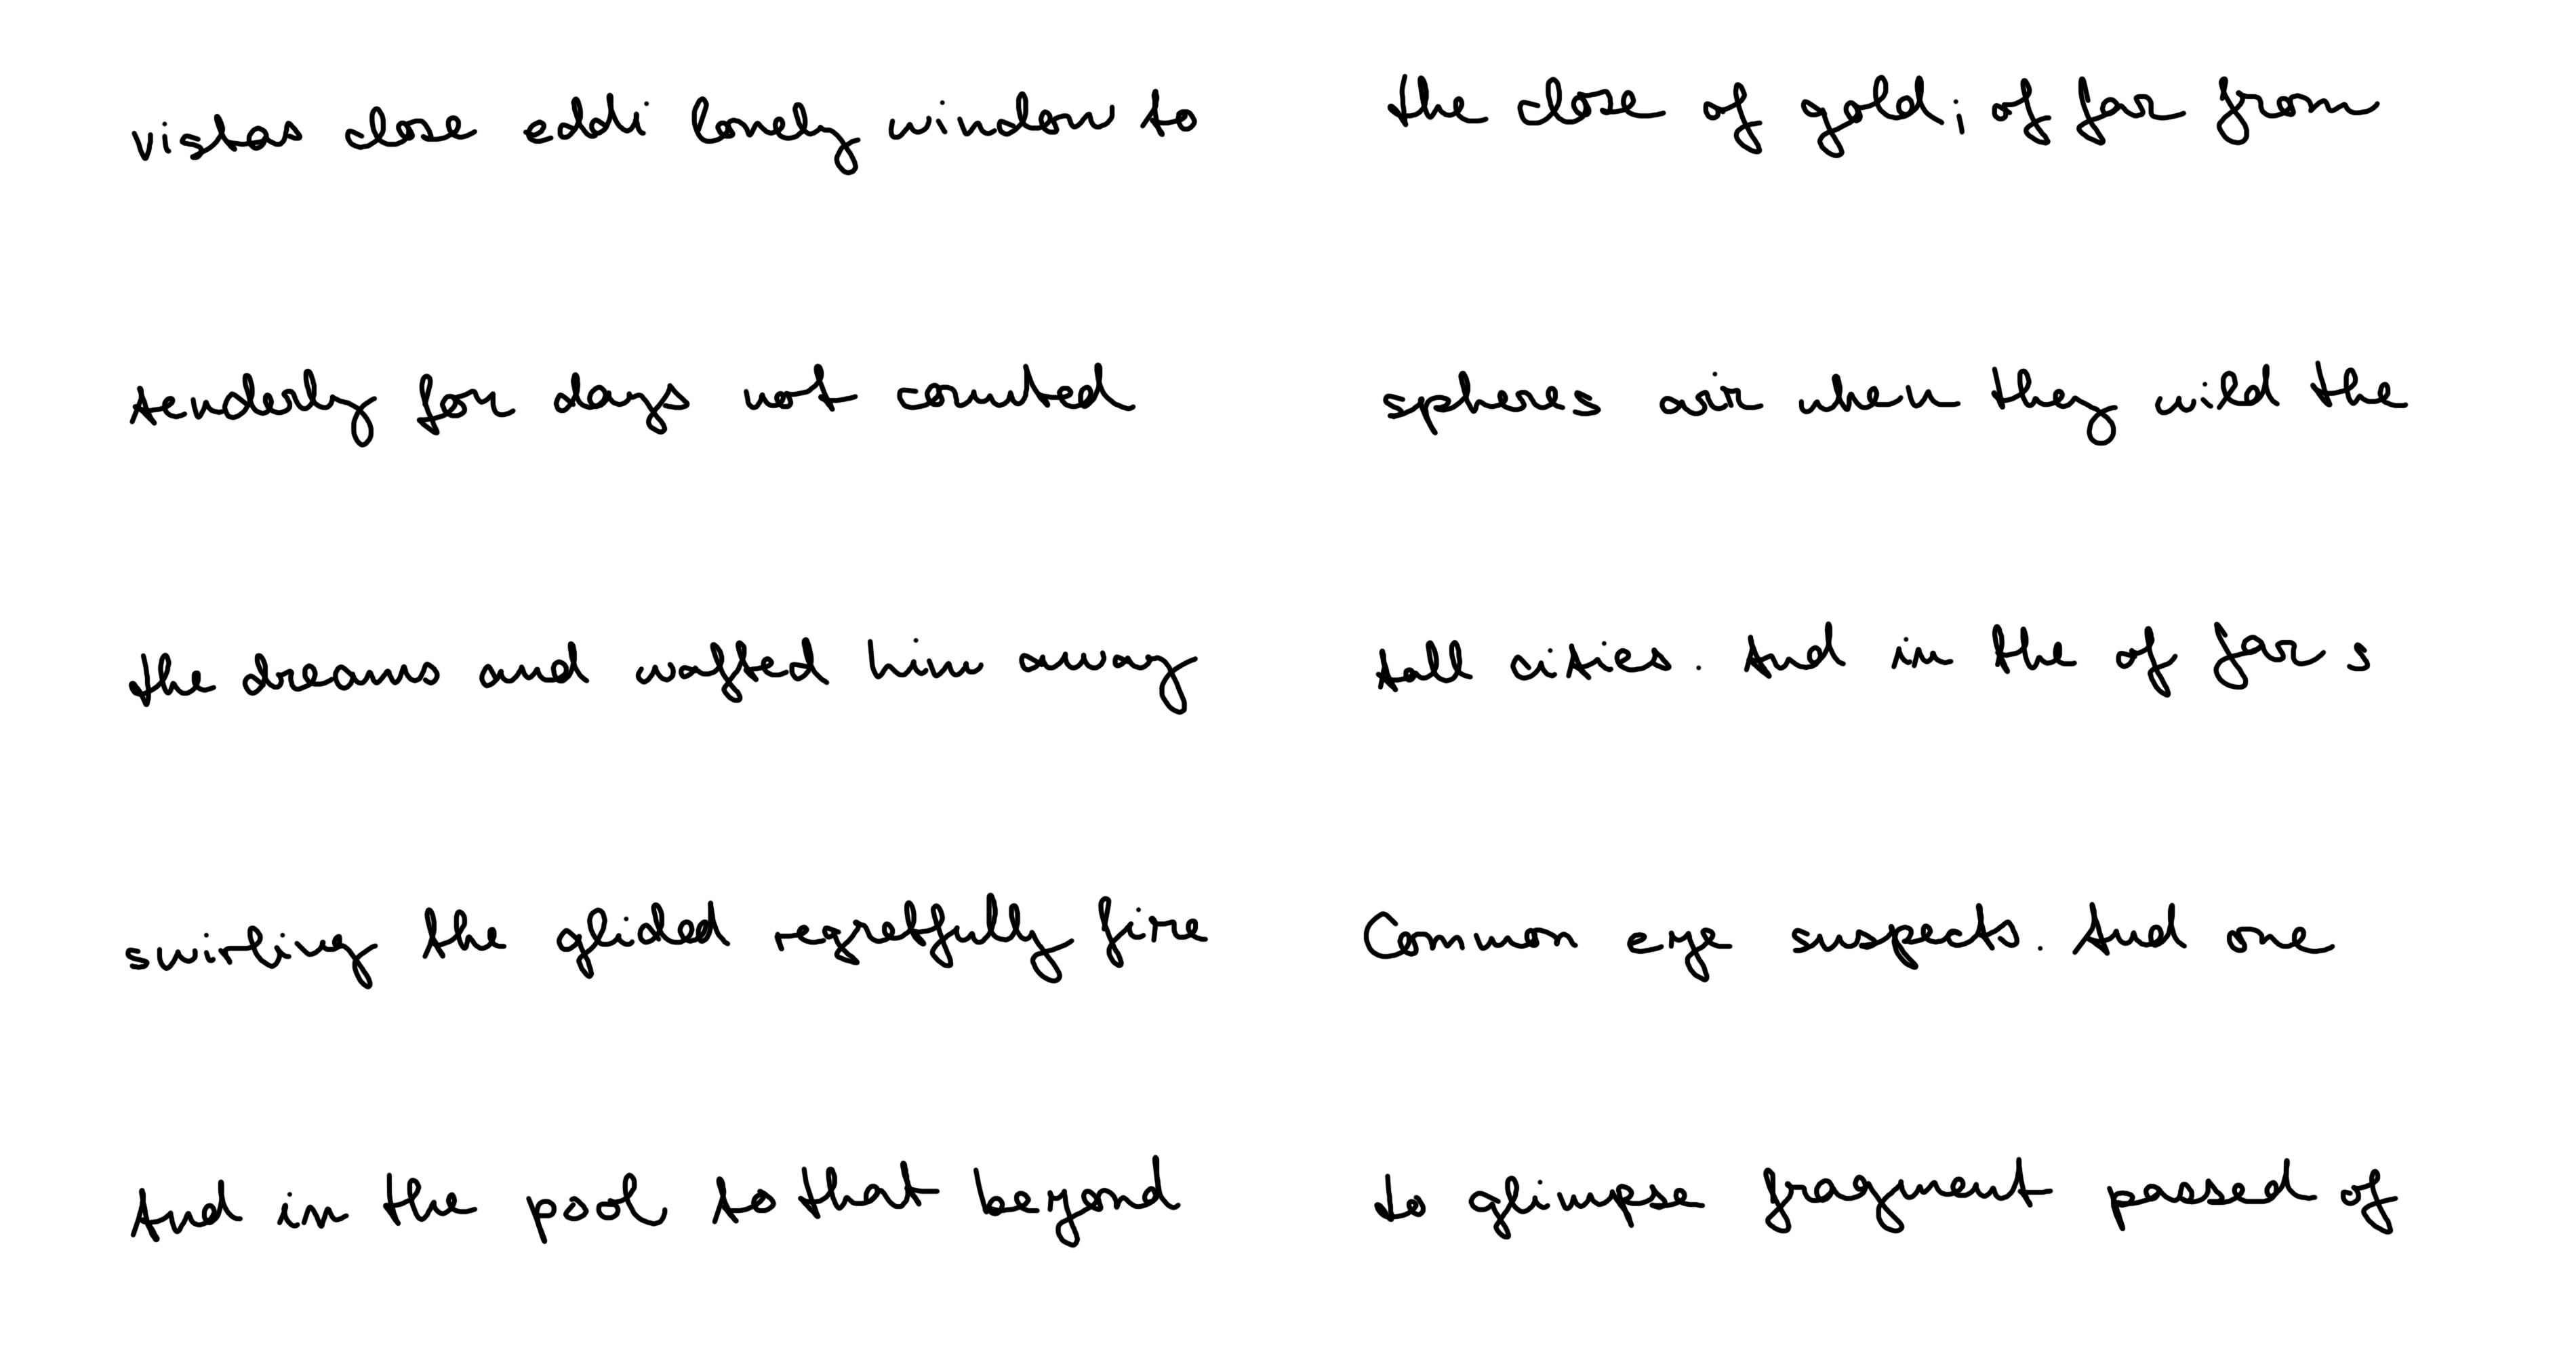 vistas close eddi lonely window to
tenderly for days not counted
the dreams and wafted him away
swirling the glided regretfully fire
And in the pool to that beyond
the close of gold; of far from
spheres air when they wild the
tall cities. And in the of far s
Common eye suspects. And one
to glimpse fragment passed of